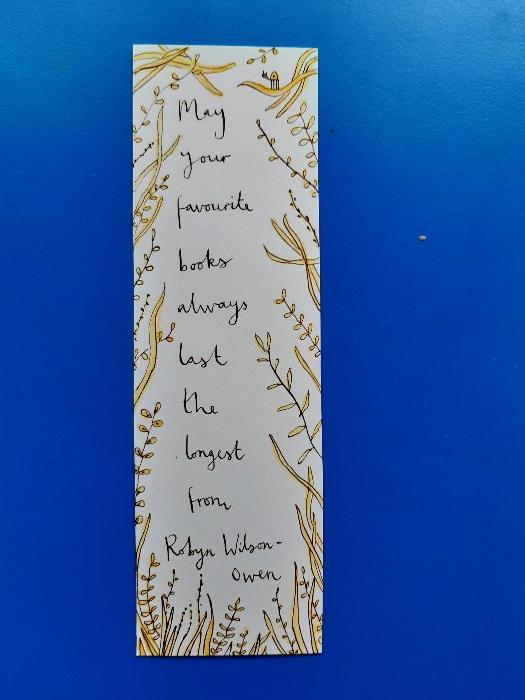 May
your
favourite
books
always
last
the
longest
from
Robyn Wilson-
Owen